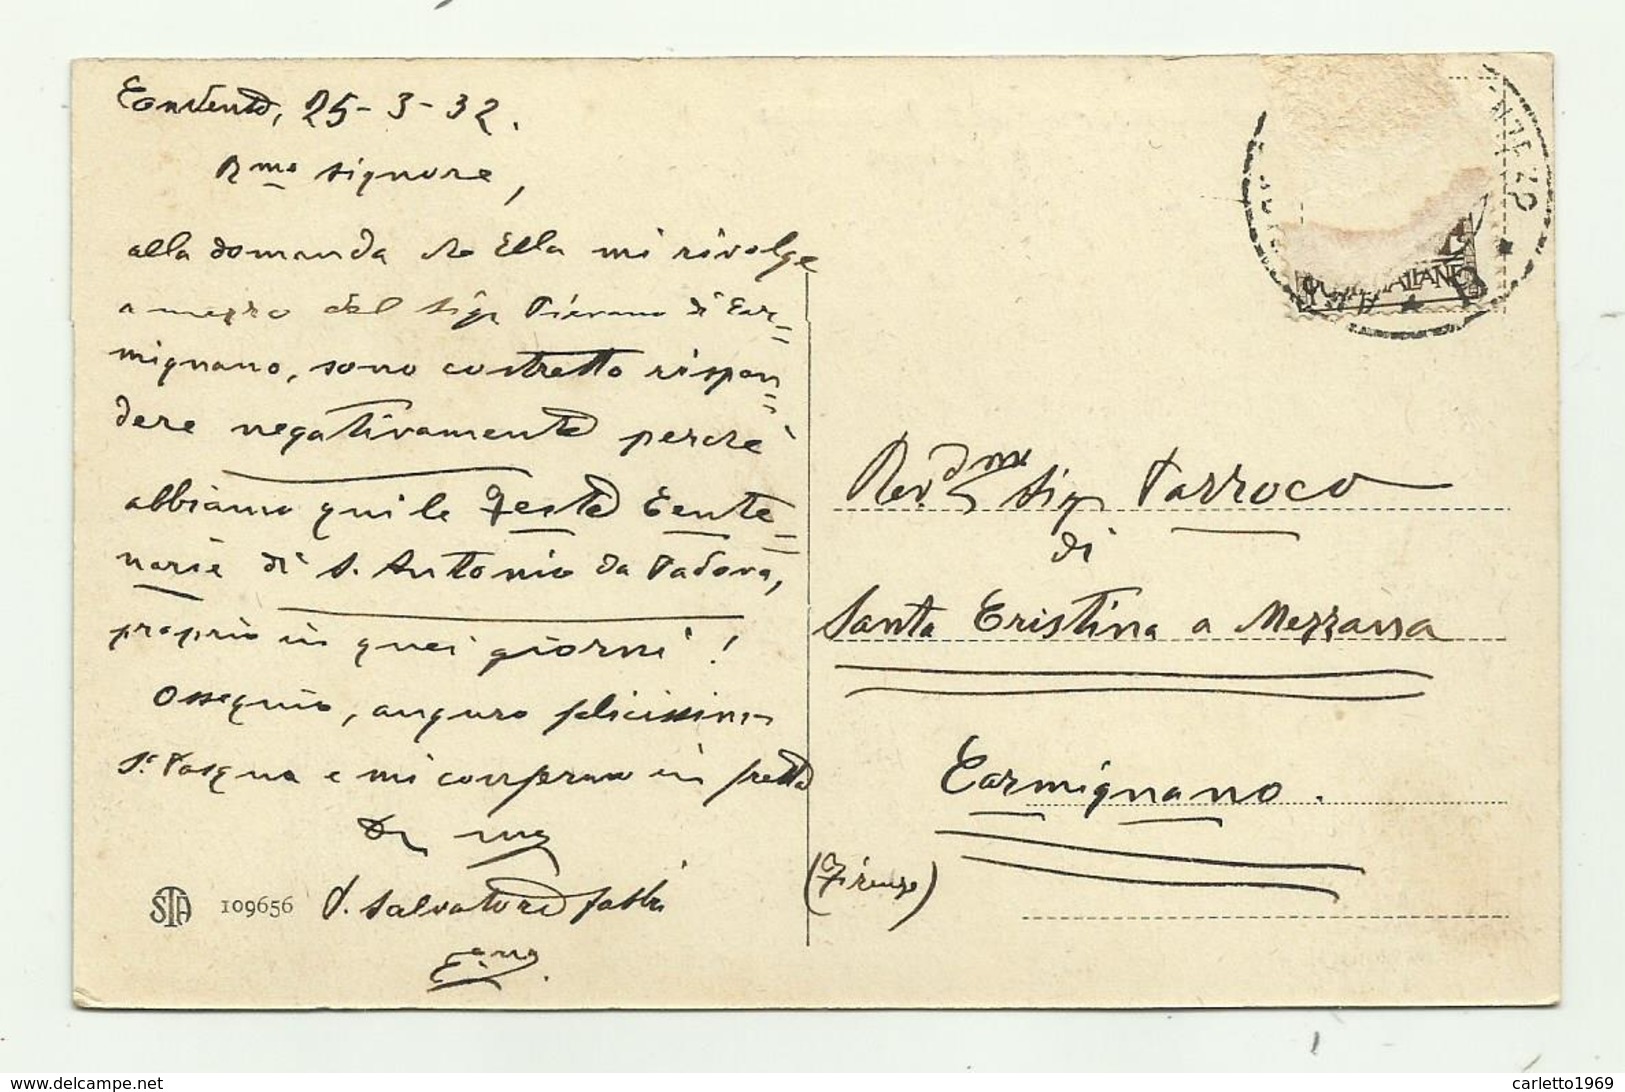 Convento, 25-3-32.
Rmo signore,
alla domanda che Ella mi rivolge
a mezzo del Sigr Pievano di Car=
mignano, sono costretto rispon=
dere negativamente perché
abbiamo qui le Feste Cente=
narie di S. Antonio da Padova,
proprio in quei giorni!
Ossequio, auguro felicissima
Sa Pasqua e mi confermo in fretta
P. Salvatore Fabbri
STA 109656
Rev.dmo Sigr Parroco
di
Santa Cristina a Mezzana
Carmignano.
(Firenze)
carletto1969
https://www.delcampe.net